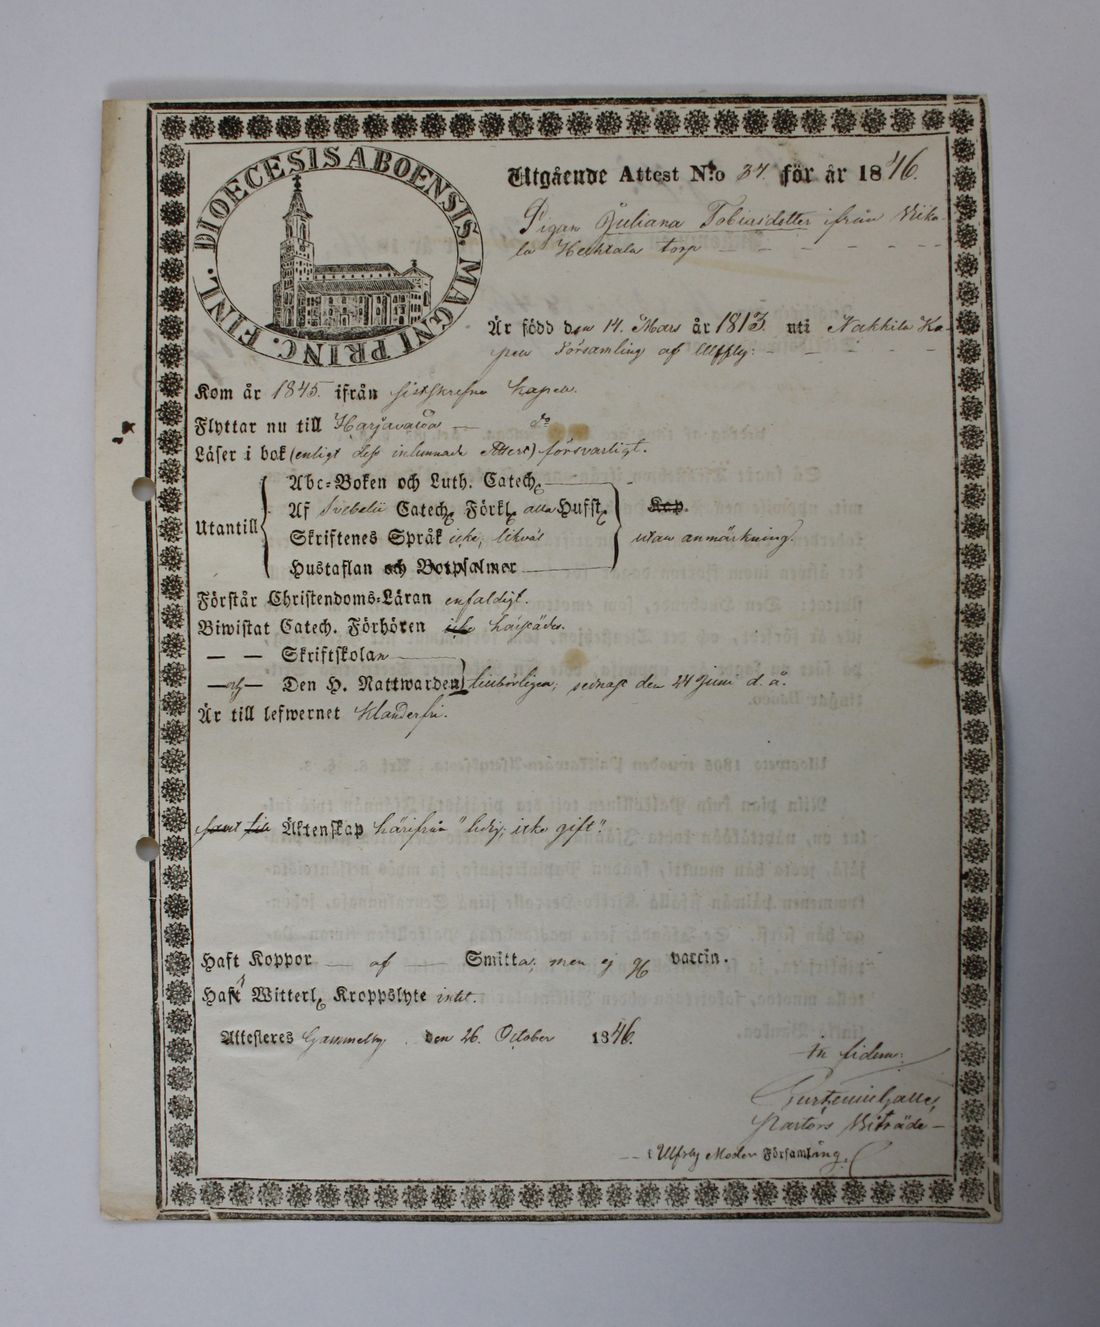 DIOECESIS ABOENSIS. MAGNI PRINC. FINL.
Utgående Attest N:o 37. för år 1846.
Pigan Juliana Tobiasdotter ifrån
torp
Är född den 14. Mars år 1813. uti Nakkila Ka-
pell Församling af Ulfsby.
Kom år 1845. ifrån sistskrefne kapell.
Flyttar nu till Harjavalda — d:o
Läser i bok (enligt dess inlemnade Attest) försvarligt.
Utantill
Abc-Boken och Luth. Catech.
Af Svebelii Catech. Förkl. alla Husst.
Skriftenes Språk icke, likväl
Hustaflan och Botpsalmer
Kap.
utan anmärkning.
Förstår Christendoms-Läran enfaldigt.
Biwistat Catech. Förhören icke
— — Skriftskolan
— och — Den H. Nattwarden, senast den 24 Juni d. å.
Är till lefwernet Klanderfri.
samt till Äktenskap härifrån "ledig, icke gift".
Haft Koppor — af — Smitta, men ej vaccin.
Haft Witterl. Kroppslyte intet.
Attesteres Gammelby den 26. October 1846.
In fidem:
Pastors Biträde
i Ulfsby Moder Församling.